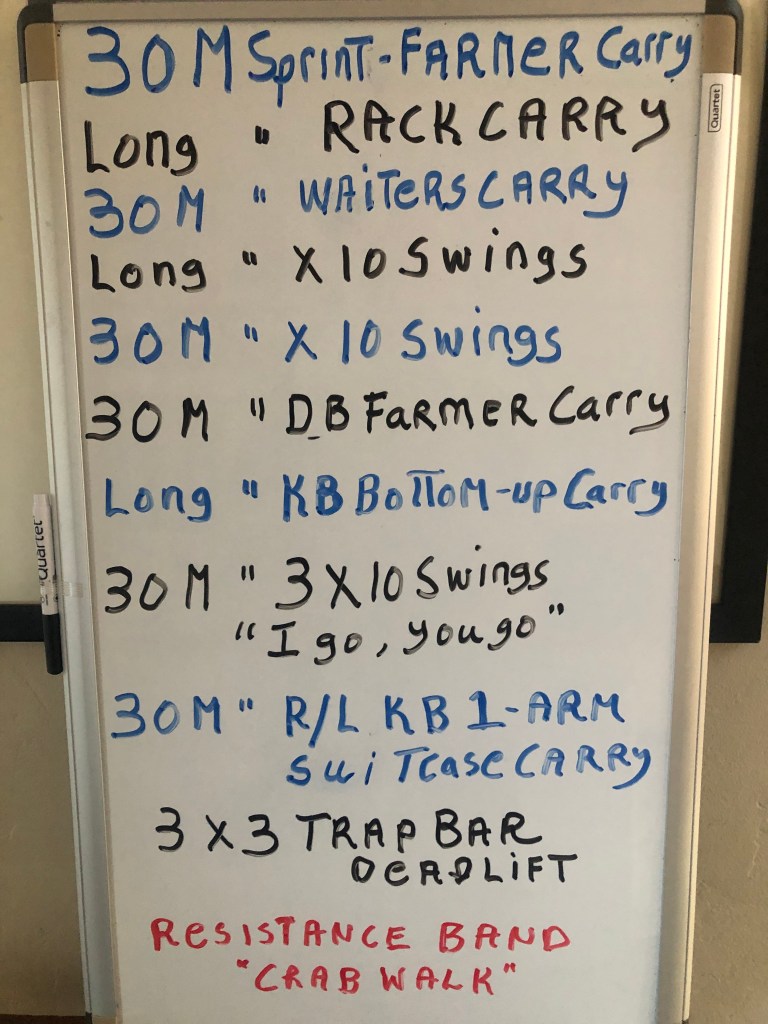 30M Sprint-FARMER Carry
Quartet
Long " RACK CARRY
30M " WAITERS CARRY
Long " X 10 Swings
30M " X 10 Swings
30M " DB FARMER Carry
Long " KB BOTTOM-up Carry
Quartet
30M " 3 X 10 Swings
"I go, you go"
30M " R/L KB 1-ARM
SuiTcase CARRY
3 X 3 TRAP BAR
DEADLIFT
RESISTANCE BAND
"CRAB WALK"